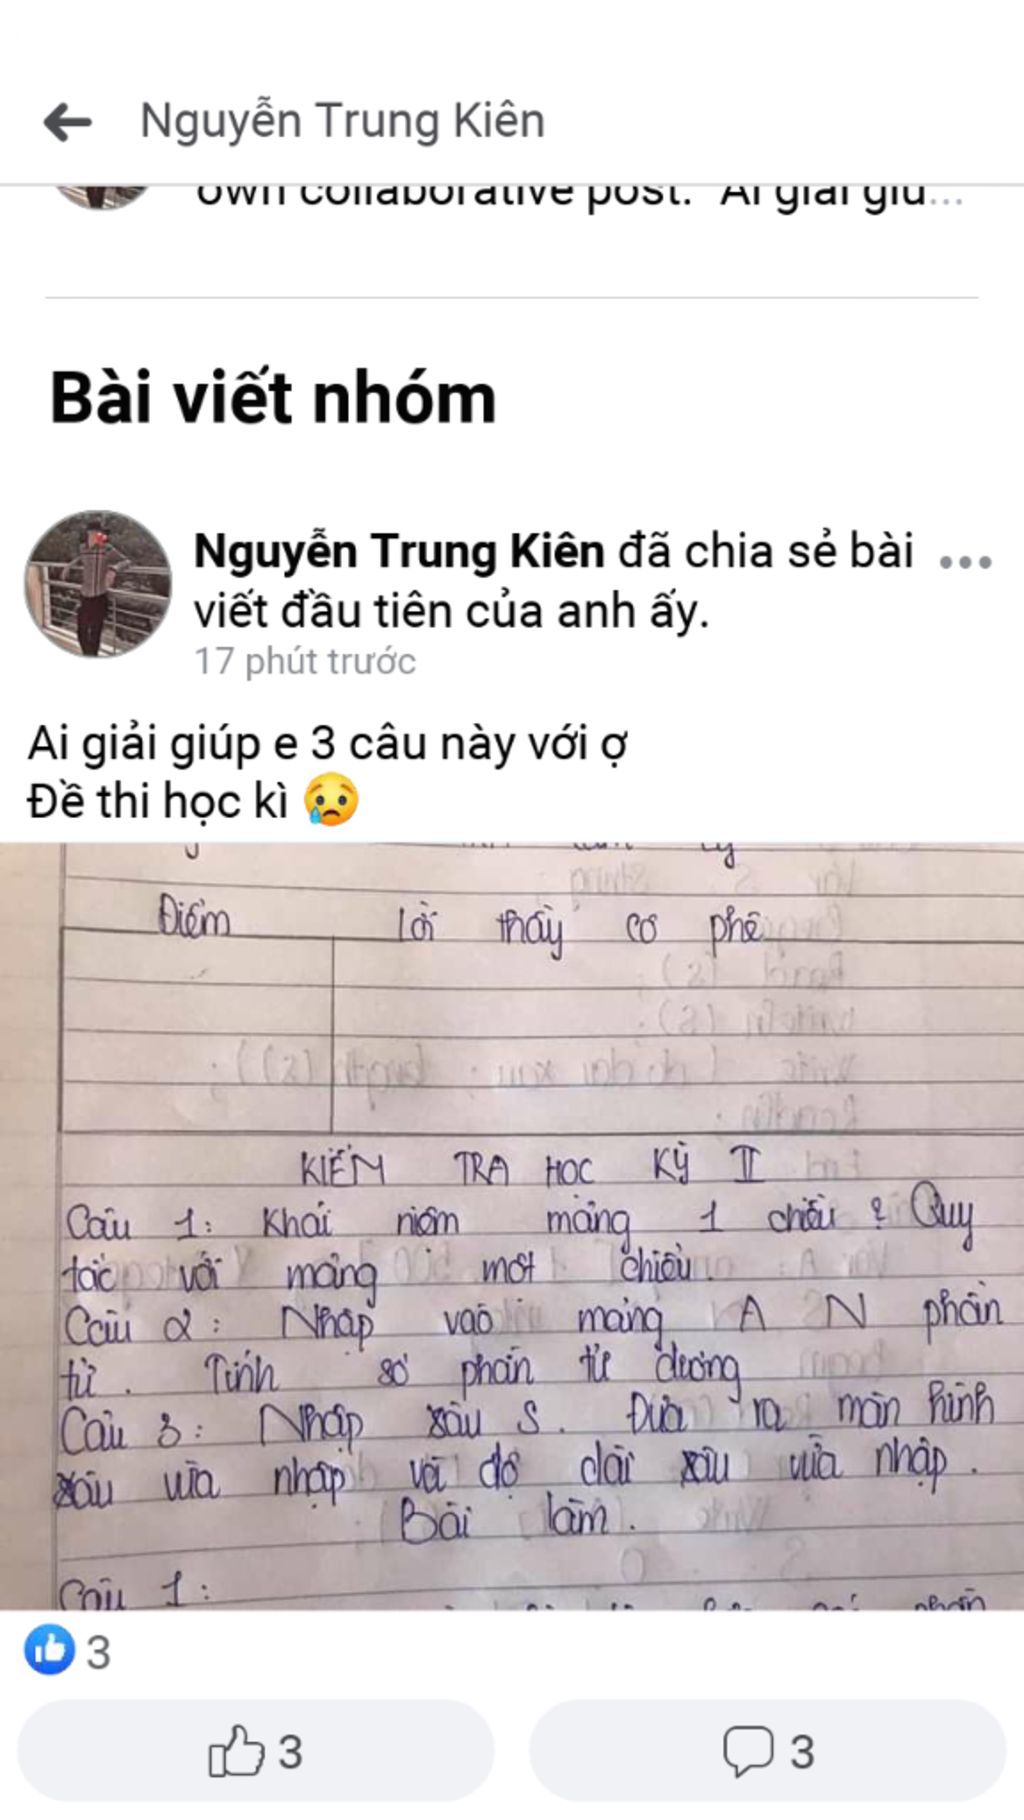 Nguyễn Trung Kiên
own collaborative post." "Ai giải giú...
Bài viết nhóm
Nguyễn Trung Kiên đã chia sẻ bài
viết đầu tiên của anh ấy.
17 phút trước
Ai giải giúp e 3 câu này với ợ
Đề thi học kì 😥
Điểm Lời thầy cô phê
KIỂM TRA HỌC KỲ II
Câu 1: Khái niệm mảng 1 chiều ? Quy
tắc với mảng một chiều.
Câu 2: Nhập vào mảng A N phần
tử. Tính số phần tử dương
Câu 3: Nhập xâu S. Đưa ra màn hình
xâu vừa nhập và độ dài xâu vừa nhập.
Bài làm.
Câu 1:
3
3 3